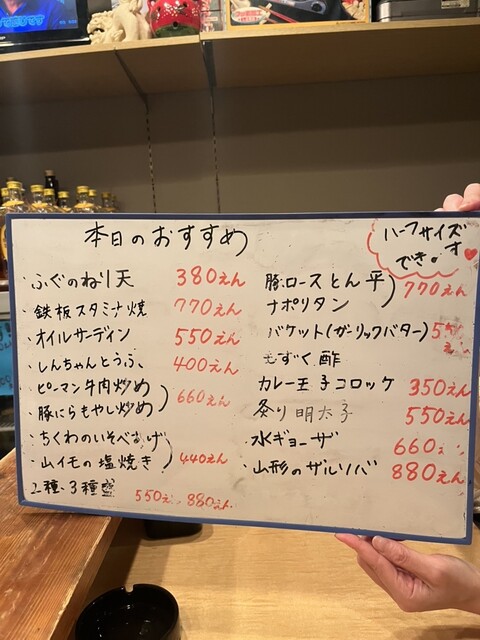 本日のおすすめ
ハーフサイズ
できます
・ふぐのねり天 380えん
・鉄板スタミナ焼 770えん
・オイルサーディン 550えん
・しんちゃんとうふ 400えん
・ピーマン牛肉炒め
・豚にらもやし炒め 660えん
・ちくわのいそべあげ
・山イモの塩焼き 440えん
2種、3種盛 550えん 880えん
豚ロースとん平
ナポリタン 770えん
・バケット(ガーリックバター)
もずく酢
カレー玉子コロッケ 350えん
炙り明太子 550えん
・水ギョーザ 660えん
・山形のザルソバ 880えん